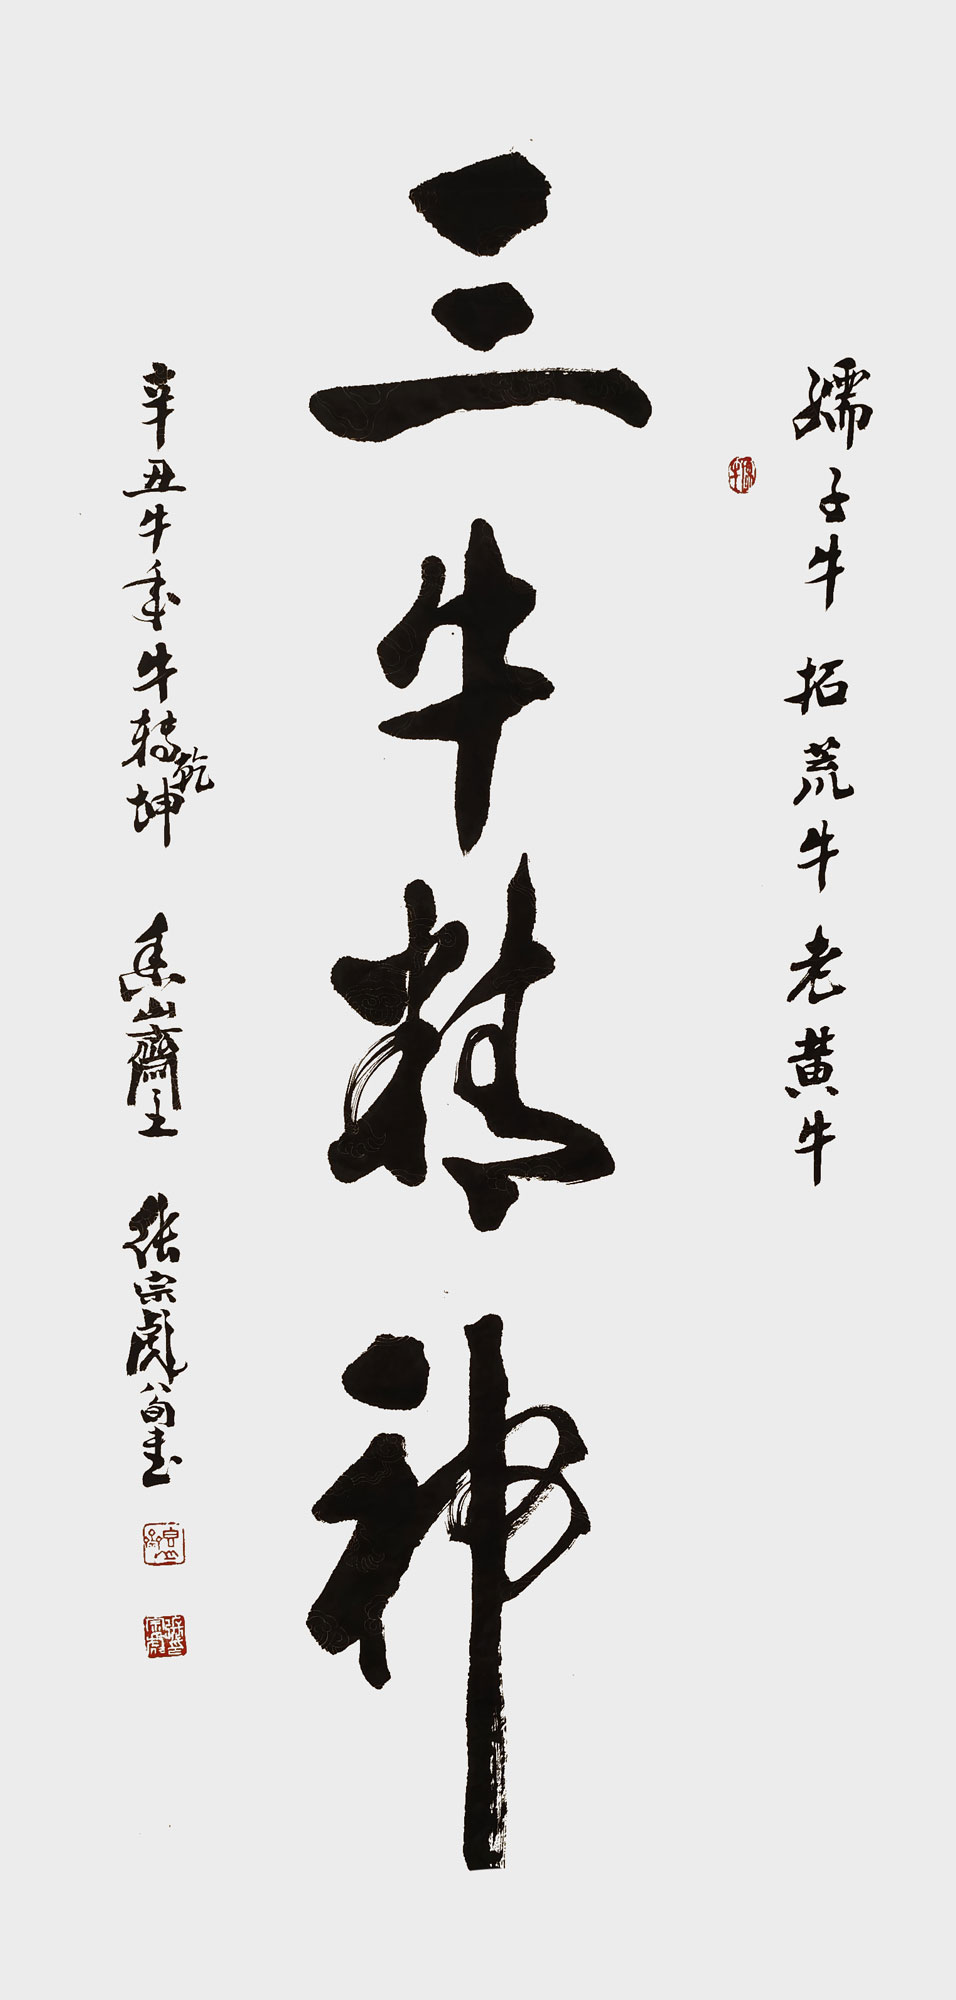 孺子牛 拓荒牛 老黄牛
三牛精神
辛丑牛年牛转乾坤 香山齋主 张宗彪八旬書